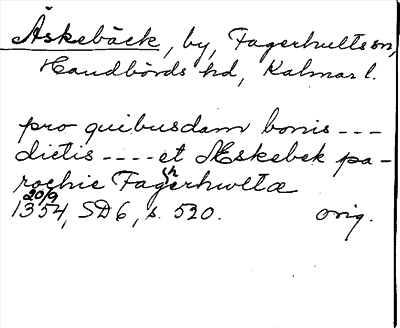 Åskebäck, by, Fagerhults sn,
Handbörds hd, Kalmar l.
pro quibusdam bonis ---
dictis ---- et Æskebek pa-
rochie Fagherhultæ
20/9 1354, SD 6, s. 520. orig.